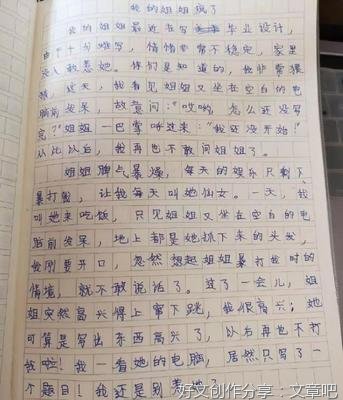 我的姐姐疯了
我的姐姐最近在写毕业设计,
由于十分难写,情绪非常不稳定,家里
没人敢惹她。你们是知道的,我非常猥
琐,这天,我看见姐姐又坐在空白的电
脑前发呆,故意问:"哎哟,怎么还没写
完?"姐姐一巴掌呼过来:"我还没开始!"
从此以后,我再也不敢问姐姐了。
姐姐脾气暴燥,每天的娱乐只剩下
暴打我,让我每天叫她仙女。一天,我
叫她来吃饭,只见姐姐又坐在空白的电
脑前发呆,地上都是她抓下来的头发,
我刚要开口,忽然想起姐姐暴打我时的
情境,就不敢说话了。过了一会儿,姐
姐突然高兴得上窜下跳,我很高兴;她
可算是写出东西高兴了,以后再也不打
我啦!我一看她的电脑,居然只写了一
个题目!我还是别惹她了
好文创作分享:文章吧